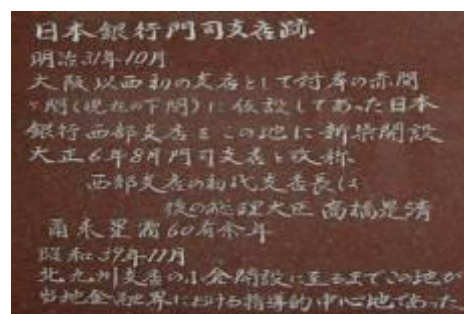 日本銀行門司支店跡
明治31年10月
大阪以西初の支店として対岸の赤間
ヶ関(現在の下関)に仮設してあった日本
銀行西部支店をこの地に新築開設
大正6年8月門司支店と改称
西部支店の初代支店長は
後の総理大臣 高橋是清
爾来星霜60有余年
昭和39年11月
北九州支店の小倉開設に至るまでこの地が
当地金融界における指導的中心地であった